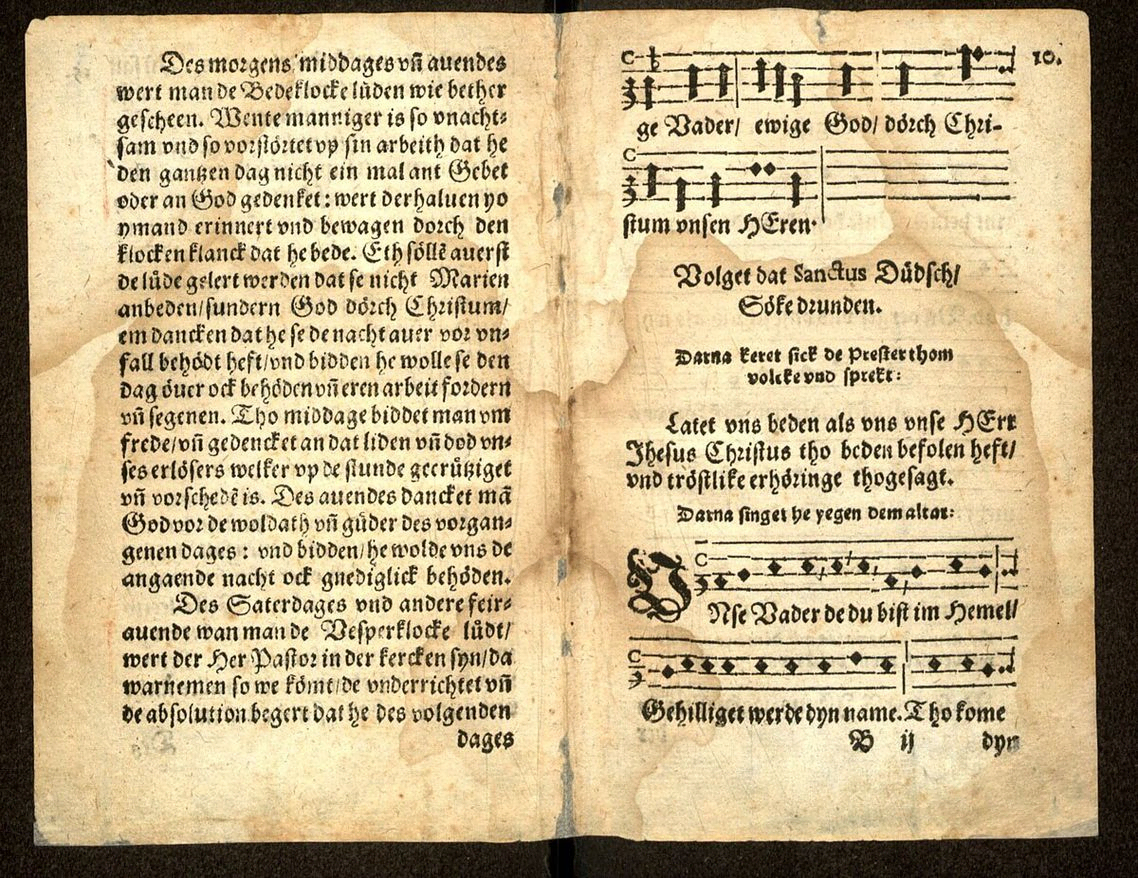 Des morgens middages vñ auendes
wert man de Bedeklocke lüden wie bether
gescheen. Wente manniger is so vnacht⸗
sam vnd so vorstörtet vp sin arbeith dat he
den gantzen dag nicht ein mal ant Gebet
oder an God gedenket: wert derhaluen yo
ymand erinnert vnd bewagen dorch den
klocken klanck dat he bede. Eth söllē auerst
de lüde gelert werden dat se nicht Marien
anbeden/sundern God dörch Christum/
em dancken dat he se de nacht auer vor vn⸗
fall behödt heft/vnd bidden he wolle se den
dag öuer ock behöden vñ eren arbeit fordern
vñ segenen. Tho middage biddet man vm
frede/vñ gedencket an dat liden vñ dod vn⸗
ses erlösers welker vp de stunde gecrützig et
vñ vorschedē is. Des auendes dancket mā
God vor de woldath vñ güder des vorgan⸗
genen dages: vnd bidden/he wolde vns de
angaende nacht ock gnediglick behöden.
Des Saterdages vnd andere feir⸗
auende wan man de Vesperklocke lüdt/
wert der Her Pastor in der kercken syn/da
warnemen so we kömt/de vnderrichtet vñ
de absolution begert dat he des volgenden
dages
10.
ge Vader/ ewige God/ dörch Chri-
stum vnsen HEren.
Volget dat Sanctus Düdsch/
Söke drunden.
Darna keret sick de Prester thom
volcke vnd sprekt:
Latet vns beden als vns vnse HErr
Jhesus Christus tho beden befolen heft/
vnd tröstlike erhöringe thogesagt.
Darna singet he yegen dem altar:
VNse Vader de du bist im Hemel/
Gehilliget werde dyn name. Tho kome
B ij dyn